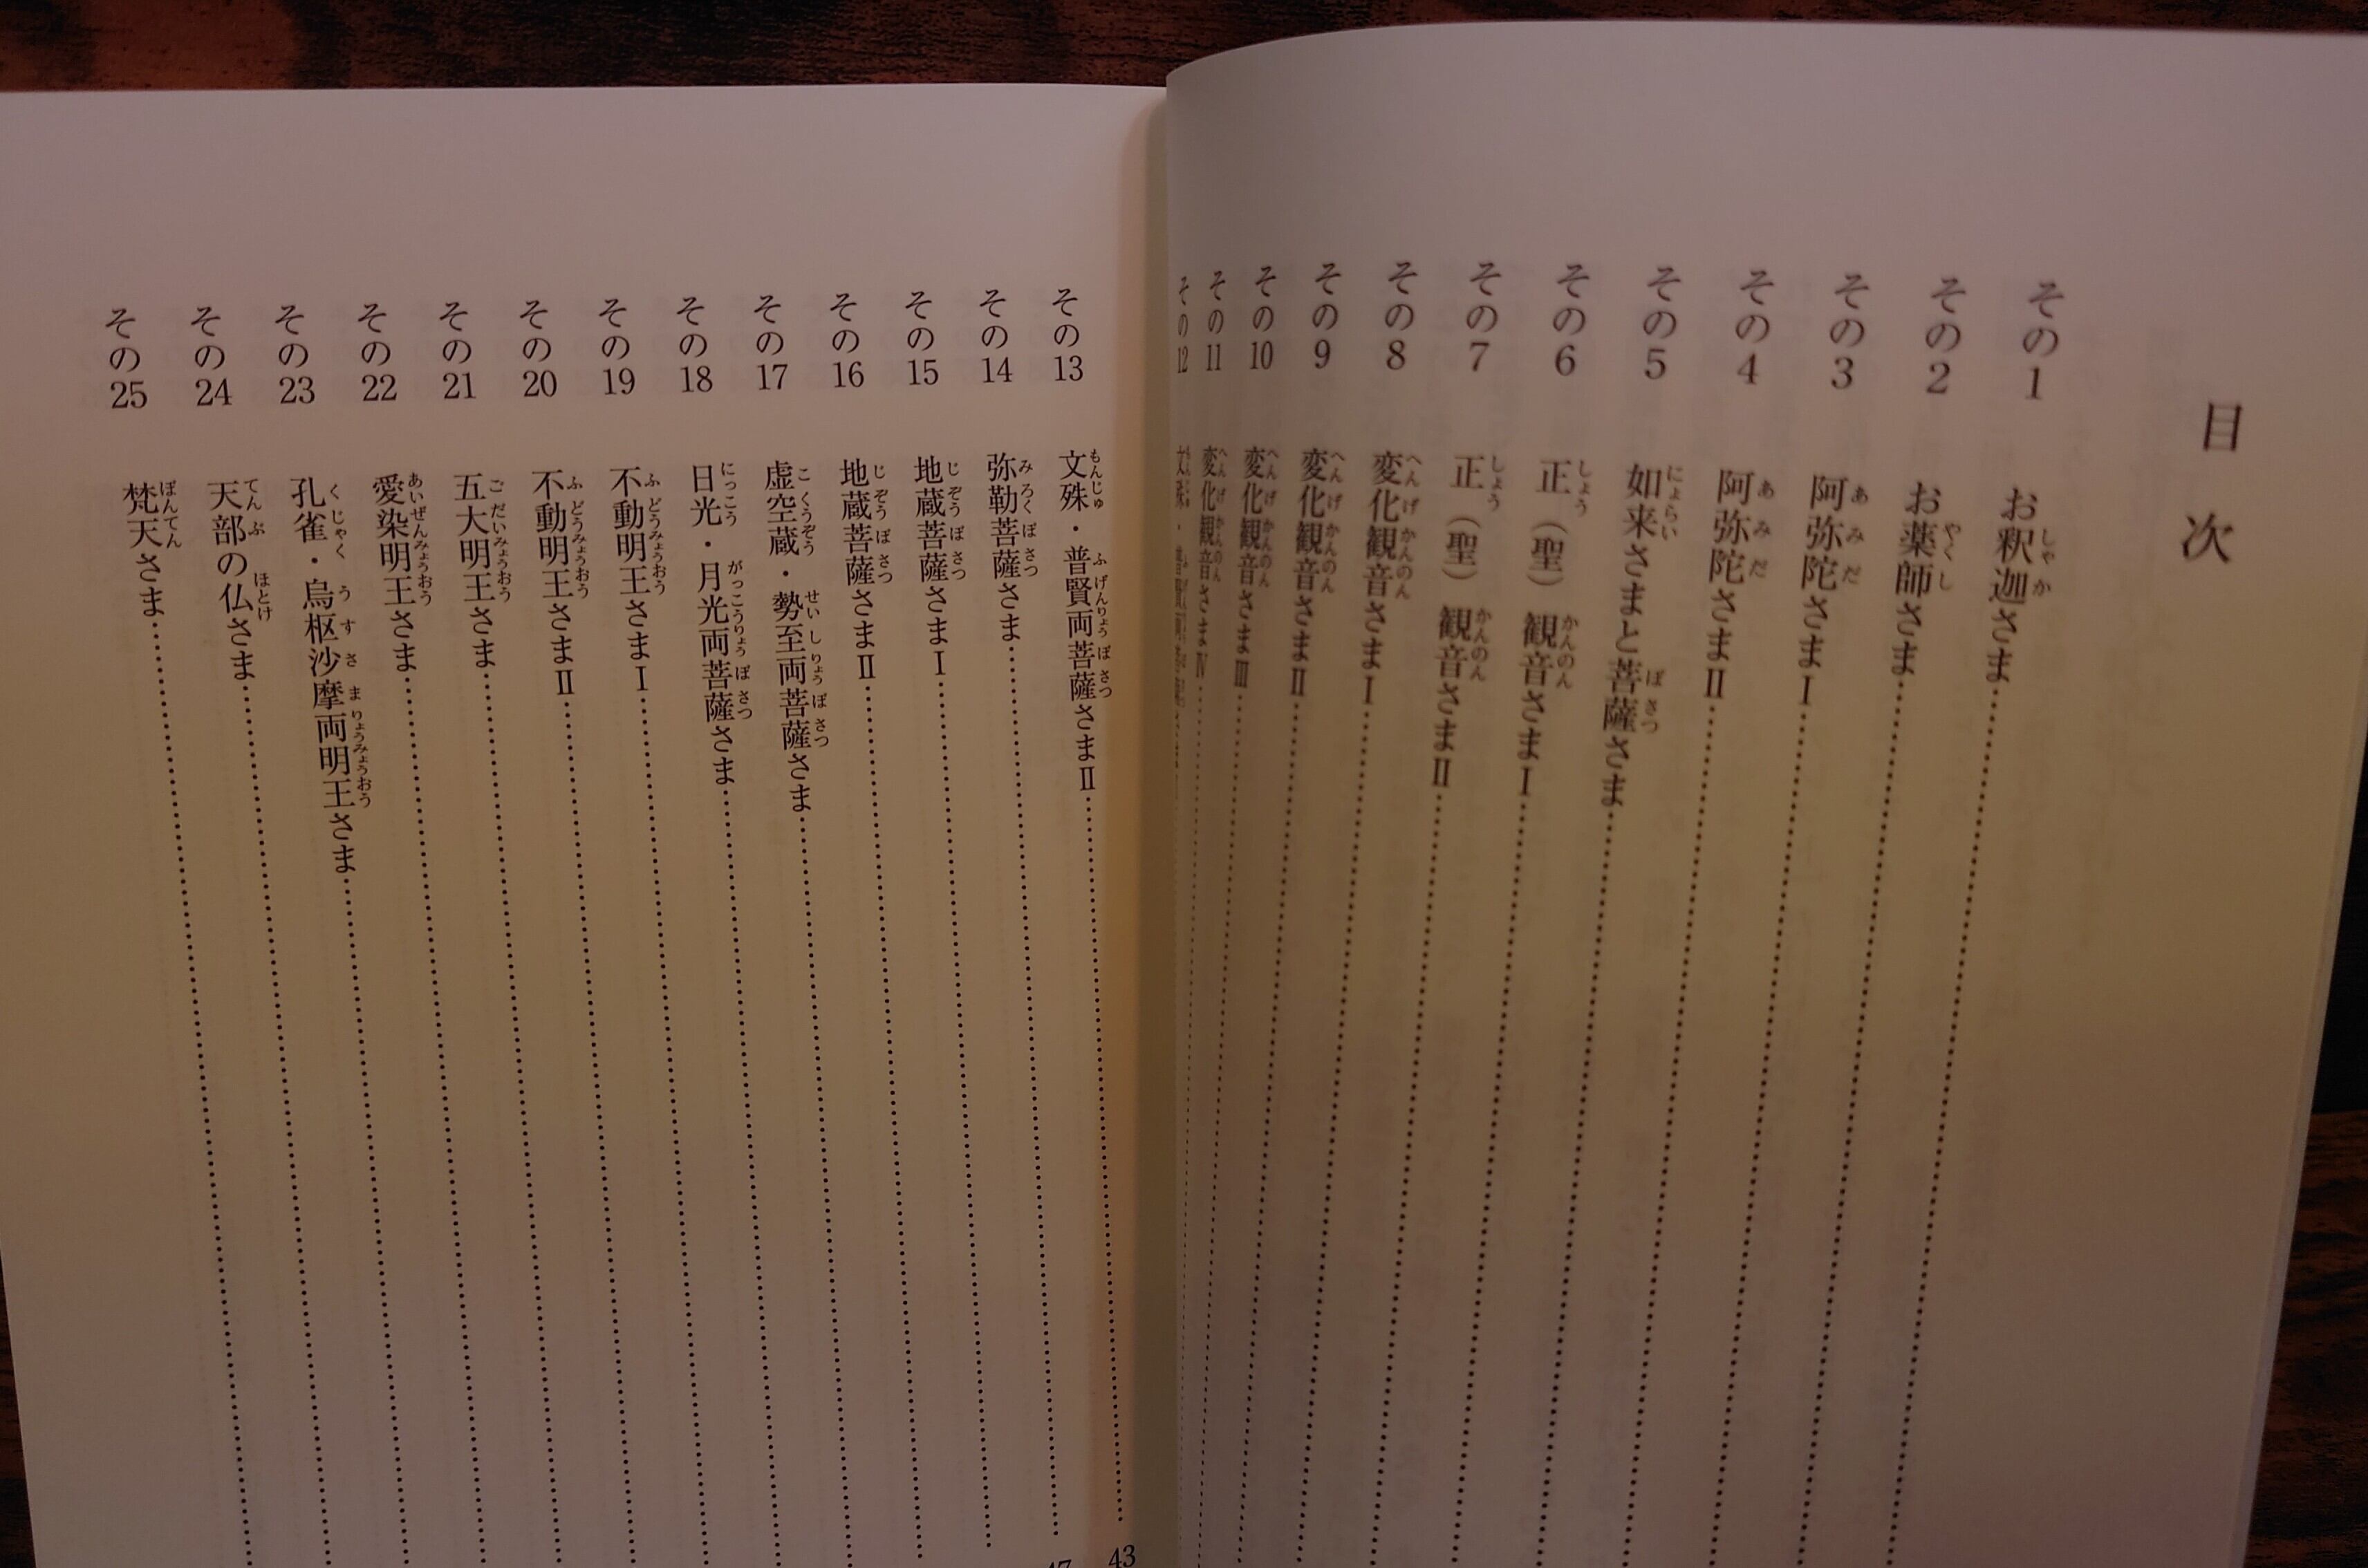 目次
その1 お釈迦さま
その2 お薬師さま
その3 阿弥陀さまⅠ
その4 阿弥陀さまⅡ
その5 如来さまと菩薩さま
その6 正（聖）観音さまⅠ
その7 正（聖）観音さまⅡ
その8 変化観音さまⅠ
その9 変化観音さまⅡ
その10 変化観音さまⅢ
その11 変化観音さまⅣ
その12 文殊・普賢両菩薩
その13 文殊・普賢両菩薩さまⅡ 43
その14 弥勒菩薩さま 47
その15 地蔵菩薩さまⅠ
その16 地蔵菩薩さまⅡ
その17 虚空蔵・勢至両菩薩さま
その18 日光・月光両菩薩さま
その19 不動明王さまⅠ
その20 不動明王さまⅡ
その21 五大明王さま
その22 愛染明王さま
その23 孔雀・烏枢沙摩両明王さま
その24 天部の仏さま
その25 梵天さま